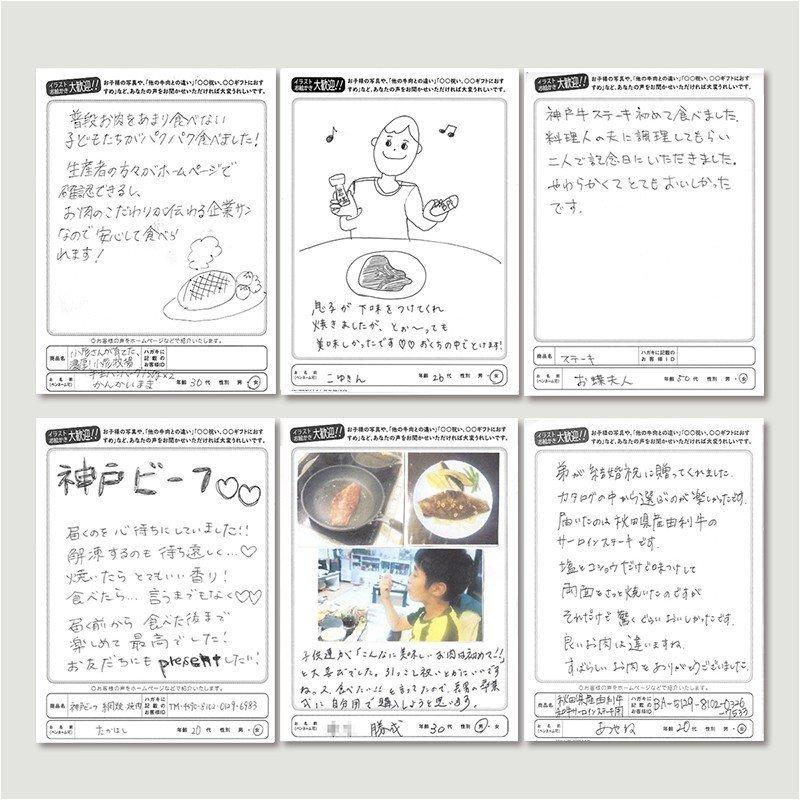 イラスト
お絵かき 大歓迎!! お子様の写真や、「他の牛肉との違い」「〇〇祝い、〇〇ギフトにおす
すめ」など、あなたの声をお聞かせいただければ大変うれしいです。
普段お肉をあまり食べない
子どもたちがパクパク食べました!
生産者の方々がホームページで
確認できるし、
お肉のこだわりが伝わる企業サン
なので安心して食べら
れます!
◎お客様の声をホームページなどで紹介いたします。
商品名
小形さんが育てた、
ハガキに
記載の
お客様ID
お名前
(ペンネーム可)
かんかいまき
年齢 30代 性別 男・女
イラスト
お絵かき 大歓迎!! お子様の写真や、「他の牛肉との違い」「〇〇祝い、〇〇ギフトにおす
すめ」など、あなたの声をお聞かせいただければ大変うれしいです。
息子が下味をつけてくれ
焼きましたが、とぉ〜っても
美味しかったです♡♡ おくちの中でとけます!
お名前
(ペンネーム可)
こゆきん
年齢 26代 性別 男・女
イラスト
お絵かき 大歓迎!! お子様の写真や、「他の牛肉との違い」「〇〇祝い、〇〇ギフトにおす
すめ」など、あなたの声をお聞かせいただければ大変うれしいです。
神戸牛ステーキ初めて食べました。
料理人の夫に調理してもらい
二人で記念日にいただきました。
やわらかくてとてもおいしかった
です。
商品名 ステーキ
ハガキに
記載の
お客様ID
お名前
(ペンネーム可)
お蝶夫人
年齢 50代 性別 男・女
イラスト
お絵かき 大歓迎!! お子様の写真や、「他の牛肉との違い」「〇〇祝い、〇〇ギフトにおす
すめ」など、あなたの声をお聞かせいただければ大変うれしいです。
神戸ビーフ♡♡
届くのを心待ちにしていました!!
解凍するのも待ち遠しく…♡
焼いたらとてもいい香り!
食べたら…言うまでもなく♡♡
届く前から食べた後まで
楽しめて最高でした!
お友だちにもpresentしたい!
◎お客様の声をホームページなどで紹介いたします。
商品名 神戸ビーフ 網焼 焼肉
ハガキに
記載の
お客様ID
TM-4490-8102-0129-6983
お名前
(ペンネーム可)
たかはし
年齢 20代 性別 男・女
イラスト
お絵かき 大歓迎!! お子様の写真や、「他の牛肉との違い」「〇〇祝い、〇〇ギフトにおす
すめ」など、あなたの声をお聞かせいただければ大変うれしいです。
子供達が「こんなに美味しいお肉は初めて!!」
と大喜びでした。引っこし祝いとかにいいです
ね。又、食べたい!!と言ってたので、長男の卒業
式に自分用で購入しようと思います。
お名前
(ペンネーム可)
勝成
年齢 30代 性別 男・女
イラスト
お絵かき 大歓迎!! お子様の写真や、「他の牛肉との違い」「〇〇祝い、〇〇ギフトにおす
すめ」など、あなたの声をお聞かせいただければ大変うれしいです。
弟が結婚祝に贈ってくれました。
カタログの中から選ぶのが楽しかったです。
届いたのは秋田県産由利牛の
サーロインステーキです。
塩とコショウだけで味つけして
両面をさっと焼いたのですが
それだけで驚くぐらいおいしかったです。
良いお肉は違いますね。
すばらしいお肉をありがとうございました。
◎お客様の声をホームページなどで紹介いたします。
商品名
秋田県産由利牛
ハガキに
記載の
お客様ID
BA-5129-8102-0326
お名前
(ペンネーム可)
あやね
年齢 20代 性別 男・女